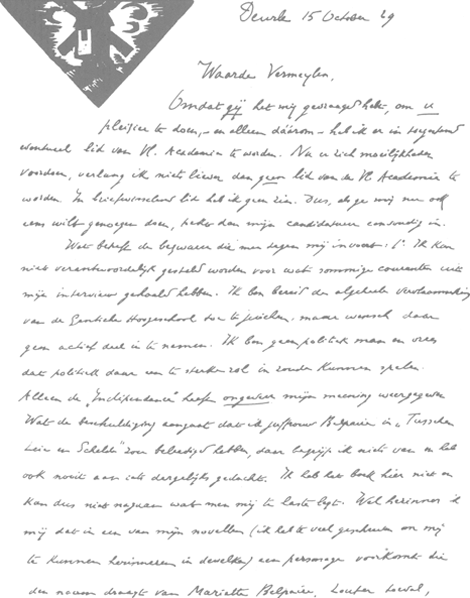 Deurle 15 October 29
Waarde Vermeylen,
Omdat gij het mij gevraagd hebt, om u
pleizier te doen, – en alleen dáárom – heb ik er in toegestemd
eventueel lid van Vl. Academie te worden. Nu er zich moeilijkheden
voordoen, verlang ik niets liever dan geen lid van de Vl. Academie te
worden. In briefwisselend lid heb ik geen zin. Dus, als ge mij nu ook
eens wilt genoegen doen, trek dan mijn candidatuur eenvoudig in.
Wat betreft de bezwaren die men tegen mij invoert: 1° Ik kan
niet verantwoordelijk gesteld worden voor wat sommige couranten uit
mijn interviews gehaald hebben. Ik ben bereid de algeheele vervlaamsching
van de Gentsche Hoogeschool toe te juichen, maar wensch daar
geen actief deel in te nemen. Ik ben geen politiek man en vrees
dat politiek daar een te sterke rol in zoude kunnen spelen.
Alleen de "Indépendance" heeft ongeveer mijn meening weergegeven
Wat de beschuldiging aangaat dat ik juffrouw Belpaire in "Tusschen
Leie en Schelde" zou beleedigd hebben, daar begrijp ik niets van en heb
ook nooit aan iets dergelijks gedacht. Ik heb het boek hier niet en
kan dus niet nagaan wat men mij te laste legt. Wel herinner ik
mij dat in een van mijn novellen (ik heb te veel geschreven om mij
te kunnen herinneren in dewelke) een personage voorkomt die
den naam draagt van Mariette Belpaire. Louter toeval,